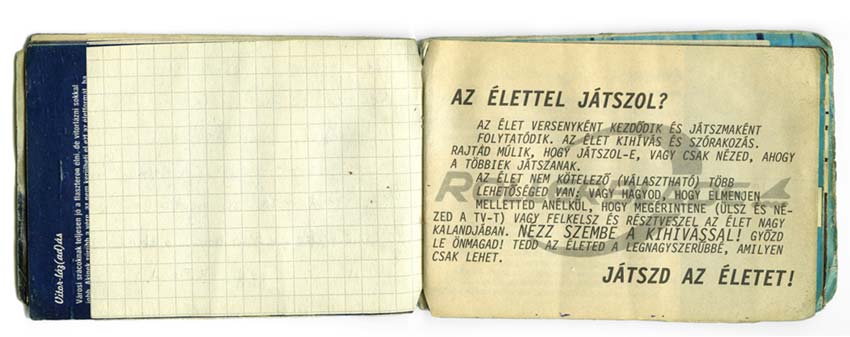 Vitor-láz(ad)ás
Városi srácoknak teljesen jó a flaszteren élni, de vitorlázni sokkal
AZ ÉLETTEL JÁTSZOL?
AZ ÉLET VERSENYKÉNT KEZDŐDIK ÉS JÁTSZMAKÉNT
FOLYTATÓDIK. AZ ÉLET KIHÍVÁS ÉS SZÓRAKOZÁS.
RAJTAD MÚLIK, HOGY JÁTSZOL-E, VAGY CSAK NÉZED, AHOGY
A TÖBBIEK JÁTSZANAK.
AZ ÉLET NEM KÖTELEZŐ (VÁLASZTHATÓ) TÖBB
LEHETŐSÉGED VAN: VAGY HAGYOD, HOGY ELMENJEN
MELLETTED ANÉLKÜL, HOGY MEGÉRINTENE (ÜLSZ ÉS NÉ-
ZED A TV-T) VAGY FELKELSZ ÉS RÉSZTVESZEL AZ ÉLET NAGY
KALANDJÁBAN. NÉZZ SZEMBE A KIHÍVÁSSAL! GYŐZD
LE ÖNMAGAD! TEDD AZ ÉLETED A LEGNAGYSZERŰBBÉ, AMILYEN
CSAK LEHET.
JÁTSZD AZ ÉLETET!